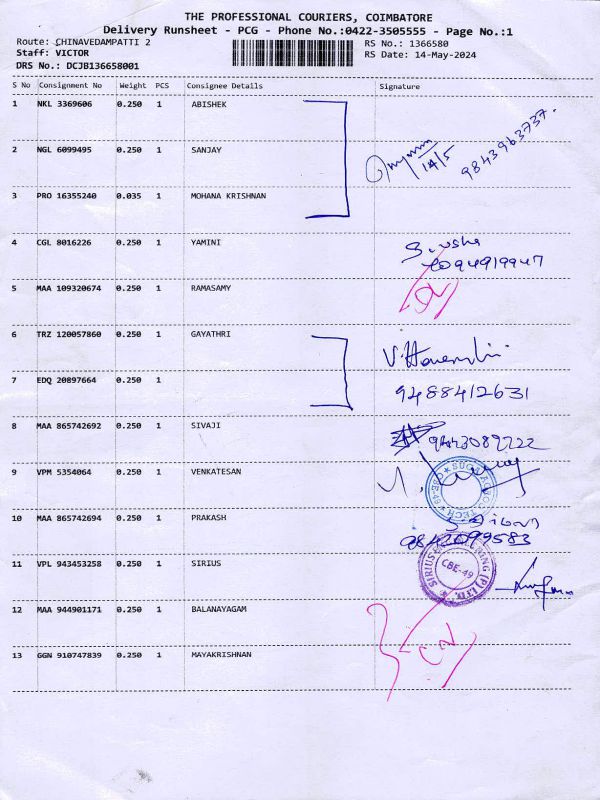 THE PROFESSIONAL COURIERS, COIMBATORE
Delivery Runsheet - PCG - Phone No.:0422-3505555 - Page No.:1
Route: CHINAVEDAMPATTI 2
RS No.: 1366580
Staff: VICTOR
RS Date: 14-May-2024
DRS No.: DCJB136658001
S No Consignment No Weight PCS Consignee Details Signature
1 NKL 3369606 0.250 1 ABISHEK
2 NGL 6099495 0.250 1 SANJAY
14/5 9843963737.
3 PRO 16355240 0.035 1 MOHANA KRISHNAN
4 CGL 8016226 0.250 1 YAMINI S. usha
5 MAA 109320674 0.250 1 RAMASAMY
6 TRZ 120057860 0.250 1 GAYATHRI
7 EDQ 20897664 0.250 1 9488412631
8 MAA 865742692 0.250 1 SIVAJI
9 VPM 5354064 0.250 1 VENKATESAN
10 MAA 865742694 0.250 1 PRAKASH
9842099583
11 VPL 943453258 0.250 1 SIRIUS CBE-49
12 MAA 944901171 0.250 1 BALANAYAGAM
13 GGN 910747839 0.250 1 MAYAKRISHNAN